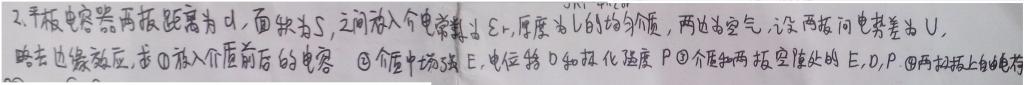 2.平板电容器两板距离为d,面积为S,之间放入介电常数为εr,厚度为l的均匀介质,两边为空气,设两板间电势差为U,
略去边缘效应,求①放入介质前后的电容 ②介质中场强E,电位移D和极化强度P③介质和两板空隙处的E,D,P.④两极板上自由电荷